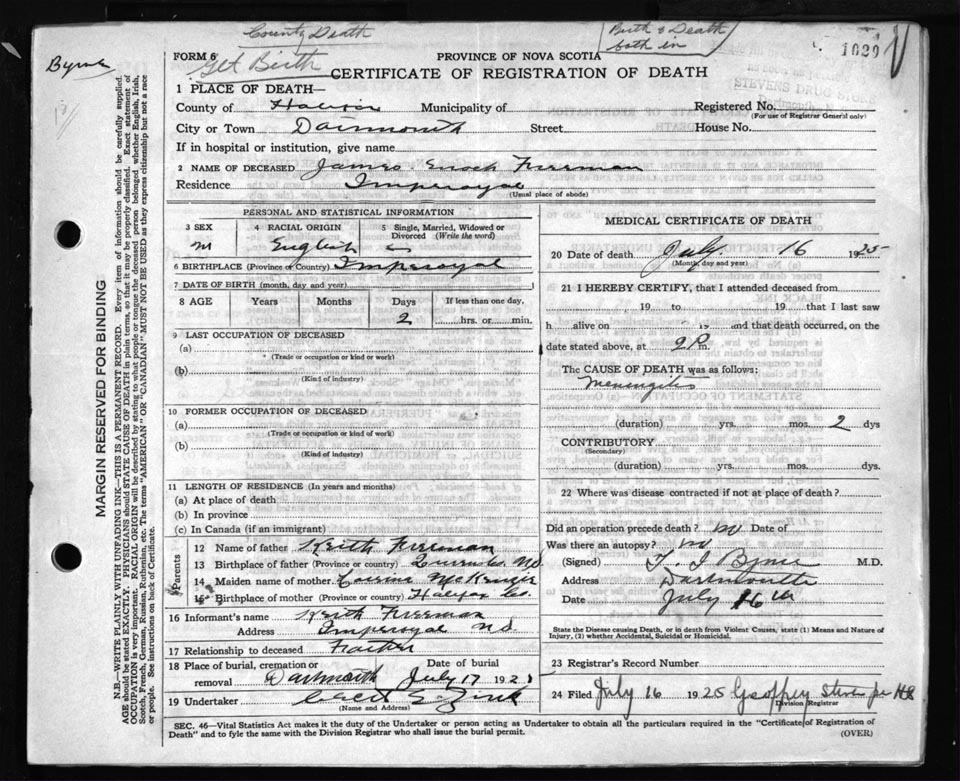 County Death
Birth & Death
both in
Byrne
Get Birth
1029
FORM 6
PROVINCE OF NOVA SCOTIA
CERTIFICATE OF REGISTRATION OF DEATH
STEVENS DRUG
1 PLACE OF DEATH—
County of Halifax Municipality of Registered No.
(For use of Registrar General only)
City or Town Dartmouth Street House No.
If in hospital or institution, give name
2 NAME OF DECEASED James Enoch Freeman
Residence Imperoyal
(Usual place of abode)
PERSONAL AND STATISTICAL INFORMATION
3 SEX 4 RACIAL ORIGIN 5 Single, Married, Widowed or Divorced (Write the word)
M English S
6 BIRTHPLACE (Province or Country) Imperoyal
7 DATE OF BIRTH (month, day and year)
8 AGE Years Months Days If less than one day,
2 hrs. or min.
9 LAST OCCUPATION OF DECEASED
(a)
(Trade or occupation or kind of work)
(b)
(Kind of industry)
10 FORMER OCCUPATION OF DECEASED
(a)
(Trade or occupation or kind of work)
(b)
(Kind of industry)
11 LENGTH OF RESIDENCE (In years and months)
(a) At place of death
(b) In province
(c) In Canada (if an immigrant)
Parents
12 Name of father Keith Freeman
13 Birthplace of father (Province or Country) N.S.
14 Maiden name of mother McKenzie
15 Birthplace of mother (Province or Country) Halifax Co.
16 Informant's name Keith Freeman
Address Imperoyal N.S.
17 Relationship to deceased Father
18 Place of burial, cremation or removal Dartmouth Date of burial July 17 192
19 Undertaker Zink
(Name and Address)
MEDICAL CERTIFICATE OF DEATH
20 Date of death July 16 1925
(Month, day and year)
21 I HEREBY CERTIFY, that I attended deceased from
, 19 to 19 that I last saw
h alive on 19 and that death occurred, on the
date stated above, at 2 P m.
The CAUSE OF DEATH was as follows:
Meningitis
(duration) yrs. mos. 2 dys
CONTRIBUTORY
(Secondary)
(duration) yrs. mos. dys
22 Where was disease contracted if not at place of death?
Did an operation precede death? no Date of
Was there an autopsy? no
(Signed) T. I Byrne M.D.
Address Dartmouth
Date July 16th
State the Disease causing Death, or in death from Violent Causes, state (1) Means and Nature of
Injury, (2) whether Accidental, Suicidal or Homicidal.
23 Registrar's Record Number
24 Filed July 16 1925 Geoffrey Stevens
Division Registrar
SEC. 46—Vital Statistics Act makes it the duty of the Undertaker or person acting as Undertaker to obtain all the particulars required in the "Certificate of Registration of
Death" and to fyle the same with the Division Registrar who shall issue the burial permit.
(OVER)
MARGIN RESERVED FOR BINDING
N.B.—WRITE PLAINLY WITH UNFADING INK—THIS IS A PERMANENT RECORD. Every item of information should be carefully supplied.
AGE should be stated EXACTLY. PHYSICIANS should STATE CAUSE OF DEATH in plain terms, so that it may be properly classified. Exact statement of
OCCUPATION is very important. RACIAL ORIGIN will be described by stating to what people or tongue the deceased person belonged whether English, Irish,
Scotch, French, German, Russian, Ruthenian, etc. The terms "AMERICAN" OR "CANADIAN" MUST NOT BE USED as they express citizenship but not a race
or people. See instructions on back of Certificate.